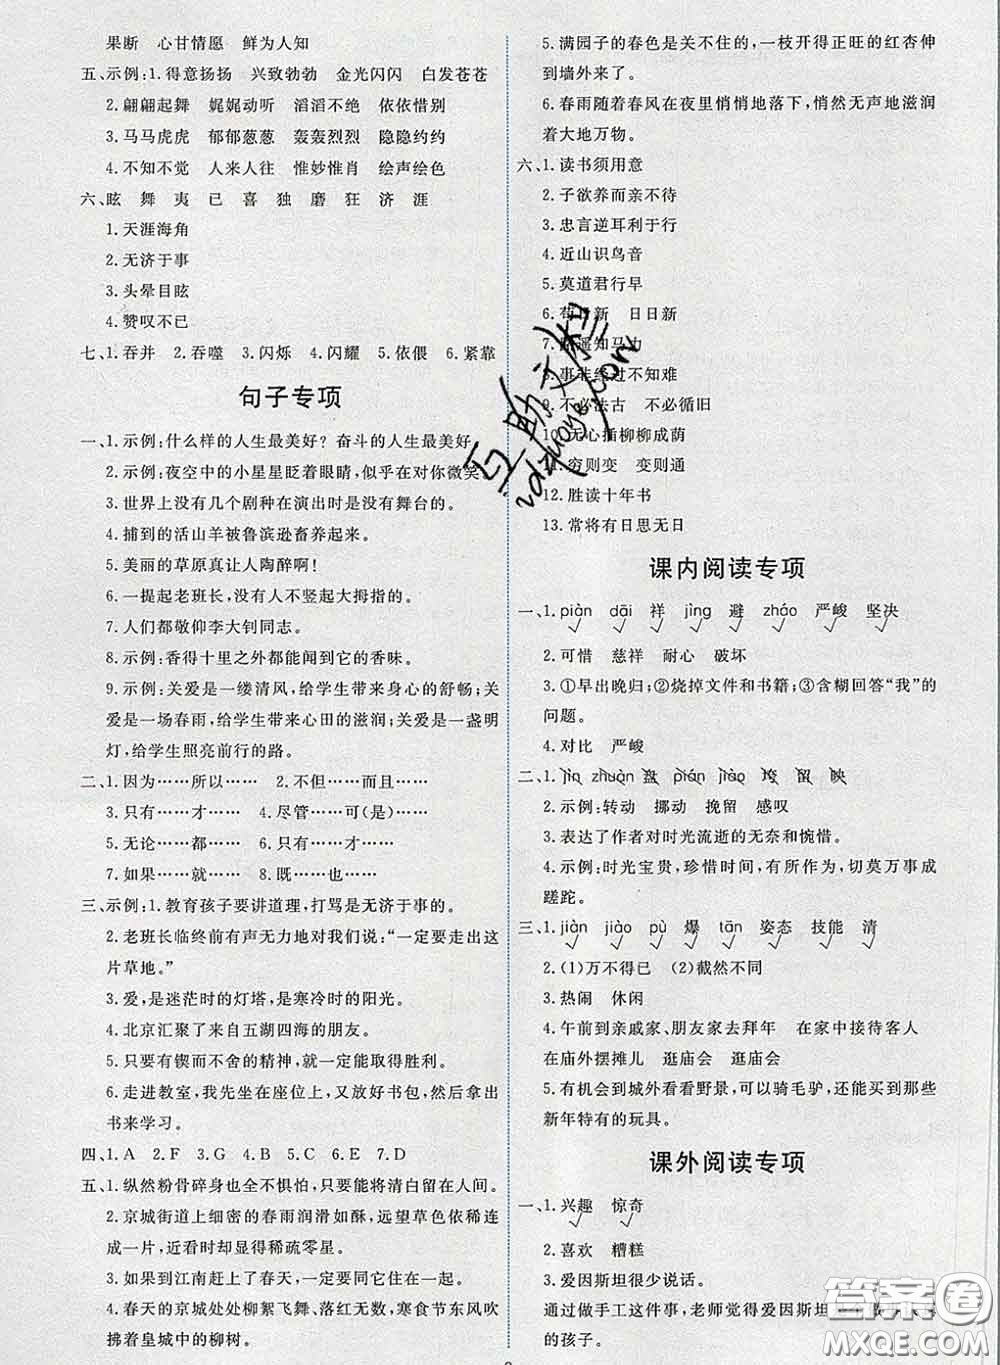 果断 心甘情愿 鲜为人知
五、示例:1.得意扬扬 兴致勃勃 金光闪闪 白发苍苍
2.翩翩起舞 娓娓动听 滔滔不绝 依依惜别
3.马马虎虎 郁郁葱葱 轰轰烈烈 隐隐约约
4.不知不觉 人来人往 惟妙惟肖 绘声绘色
六、眩 舞 夷 已 喜 独 磨 狂 济 涯
1.天涯海角
2.无济于事
3.头晕目眩
4.赞叹不已
七、1.吞并 2.吞噬 3.闪烁 4.闪耀 5.依偎 6.紧靠
句子专项
一、1.示例:什么样的人生最美好?奋斗的人生最美好。
2.示例:夜空中的小星星眨着眼睛,似乎在对你微笑。
3.世界上没有几个剧种在演出时是没有舞台的。
4.捕到的活山羊被鲁滨逊畜养起来。
5.美丽的草原真让人陶醉啊!
6.一提起老班长,没有人不竖起大拇指的。
7.人们都敬仰李大钊同志。
8.示例:香得十里之外都能闻到它的香味。
9.示例:关爱是一缕清风,给学生带来身心的舒畅;关爱是一场春雨,给学生带来心田的滋润;关爱是一盏明
灯,给学生照亮前行的路。
二、1.因为……所以…… 2.不但……而且……
3.只有……才…… 4.尽管……可(是)……
5.无论……都…… 6.只有……才……
7.如果……就…… 8.既……也……
三、示例:1.教育孩子要讲道理,打骂是无济于事的。
2.老班长临终前有声无力地对我们说:“一定要走出这
片草地。”
3.爱,是迷茫时的灯塔,是寒冷时的阳光。
4.北京汇聚了来自五湖四海的朋友。
5.只要有锲而不舍的精神,就一定能取得胜利。
6.走进教室,坐在座位上,又放好书包,然后拿起
书来学习。
四、1.A 2.F 3.G 4.B 5.C 6.E 7.D
五、1.纵然粉骨碎身也全不惧怕,只要能把清白留在人间。
2.京城街道上细密的春雨润滑如酥,远望草色依稀连
成一片,近看时却显得稀疏零星。
3.如果到江南赶上了春天,一定要和春天住在一起。
4.春天的京城处处柳絮飞舞、落红无数,寒食节东风吹
拂着皇城中的柳树。
5.满园子的春色是关不住的,一枝开得正旺的红杏伸
到墙外来了。
6.春雨随着春风在夜里悄悄地落下,悄然无声地滋润
着大地万物。
六、1.读书须用意
2.子欲养而亲不待
3.忠言逆耳利于行
4.近山识鸟音
5.莫道君行早
6.苟日新 日日新
7.路遥知马力
8.事非经过不知难
9.不必法古 不必循旧
10.无心插柳柳成荫
11.穷则变 变则通
12.胜读十年书
13.常将有日思无日
课内阅读专项
一、1.piàn dāi 祥 jìng 避 zháo 严峻 坚决
2.可惜 慈祥 耐心 破坏
3.①早出晚归;②烧掉文件和书籍;③含糊回答“我”的
问题。
4.对比 严峻
二、1.jìn zhuàn 盘 pián jiào 垮 留 映
2.示例:转动 挪动 挽留 感叹
3.表达了作者对时光流逝的无奈和惋惜。
4.示例:时光宝贵,珍惜时间,有所作为,切莫万事成
蹉跎。
三、1.jiàn jiào pù 爆 tān 姿态 技能 清
2.(1)万不得已 (2)截然不同
3.热闹 休闲
4.午前到亲戚家、朋友家去拜年 在家中接待客人
在庙外摆摊儿 逛庙会 逛庙会
5.有机会到城外看看野景,可以骑毛驴,还能买到那些
新年特有的玩具。
课外阅读专项
一、1.兴趣 惊奇
2.喜欢 糟糕
3.爱因斯坦很少说话。
通过做手工这件事,老师觉得爱因斯坦
的孩子。
互助文栏
答案圈
MXQE.COM